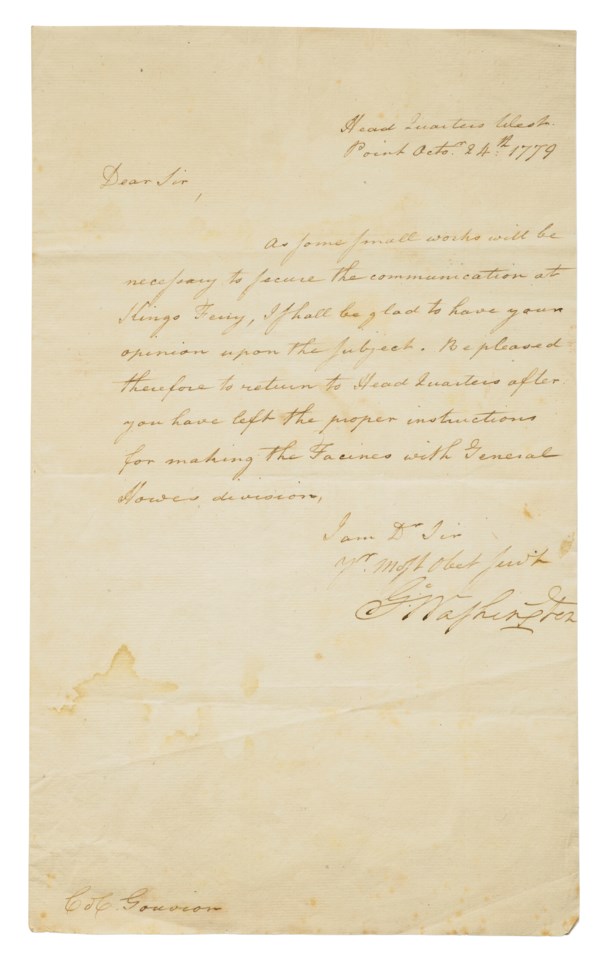 Head Quarters West-
Point Octo.r 24.th 1779
Dear Sir,
As some small works will be
necessary to secure the communication at
Kings Ferry, I shall be glad to have your
opinion upon the subject. Be pleased
therefore to return to Head Quarters after
you have left the proper instructions
for making the Facines with General
Howes division,
I am Dr Sir
Yr. Most Obet Servt
Go. Washington
Col. Gouvion